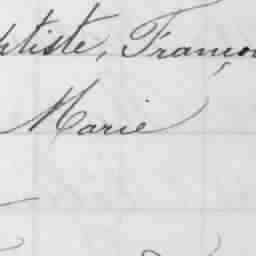 ptiste, Françoi
Marie